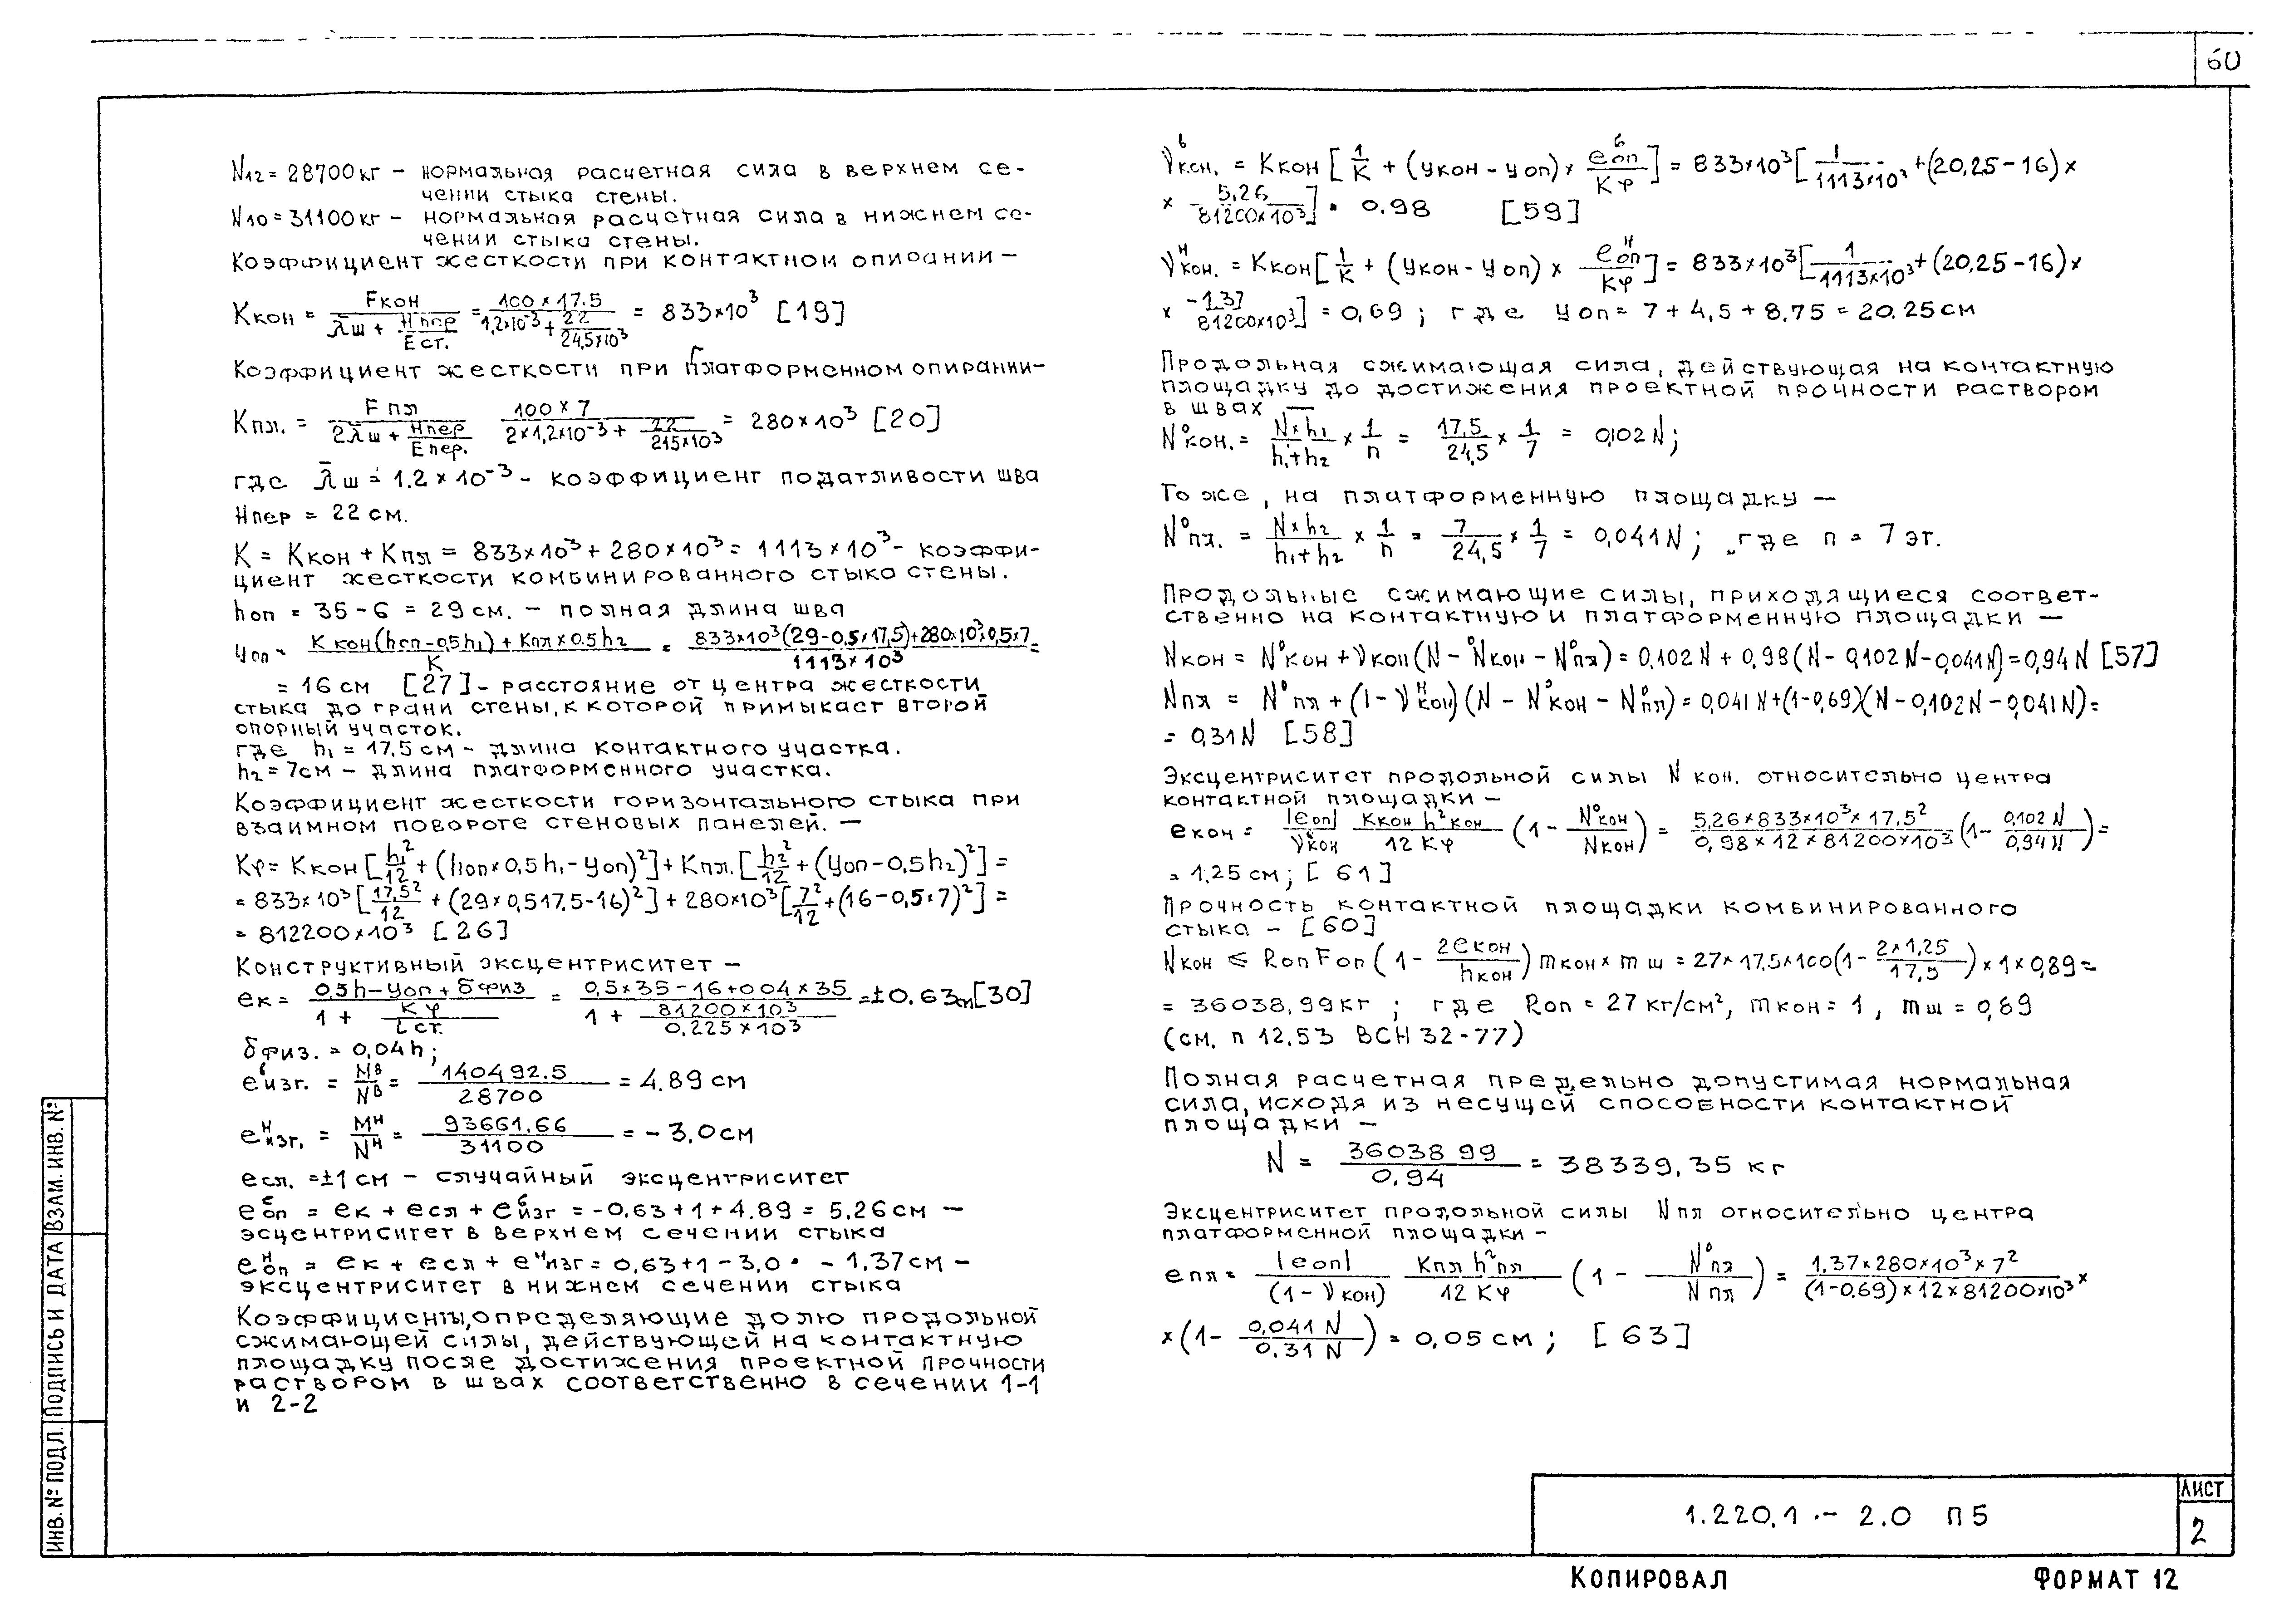 60
N12 = 28700 кг – нормальная расчетная сила в верхнем се-
чении стыка стены.
N10 = 31100 кг – нормальная расчетная сила в нижнем се-
чении стыка стены.
Коэффициент жесткости при контактном опирании –
Kкон = Fкон / (λ̄ш + Hпер/Eст.) = 100×17.5 / (1,2×10⁻³ + 22/24,5×10³) = 833×10³ [19]
Коэффициент жесткости при платформенном опирании–
Kпл. = Fпл / (2λ̄ш + Hпер/Eпер.) 100×7 / (2×1,2×10⁻³ + 22/215×10³) = 280×10³ [20]
где λ̄ш = 1.2×10⁻³ – коэффициент податливости шва
Hпер = 22 см.
K = Kкон + Kпл = 833×10³ + 280×10³ = 1113×10³ – коэффи-
циент жесткости комбинированного стыка стены.
hоп = 35 – 6 = 29 см. – полная длина шва
Yоп = (Kкон(hоп – 0,5h₁) + Kпл×0.5h₂) / K = (833×10³(29–0,5×17,5)+280×10³×0,5×7) / 1113×10³ =
= 16 см [27] – расстояние от центра жесткости
стыка до грани стены, к которой примыкает второй
опорный участок.
где h₁ = 17,5 см – длина контактного участка.
h₂ = 7см – длина платформенного участка.
Коэффициент жесткости горизонтального стыка при
взаимном повороте стеновых панелей. –
Kφ = Kкон[h₁²/12 + (hоп×0,5h₁–Yоп)²] + Kпл.[h₂²/12 + (Yоп–0.5h₂)²] =
= 833×10³[17,5²/12 + (29×0,517.5–16)²] + 280×10³[7²/12 + (16–0,5×7)²] =
= 812200×10³ [26]
Конструктивный эксцентриситет –
eк = (0,5h–Yоп+δфиз) / (1 + Kφ/Lст.) = (0,5×35–16+004×35) / (1 + 81200×10³/0,225×10³) = ±0.63см [30]
δфиз. = 0,04h;
eᵇизг. = Mᴮ/Nᴮ = 140492.5/28700 = 4.89 см
eᴴизг. = Mᴴ/Nᴴ = 93661.66/31100 = – 3.0см
eсл. = ±1 см – случайный эксцентриситет
eᵇоп = eк + eсл + eᵇизг = –0,63+1+4.89 = 5,26см –
эсцентриситет в верхнем сечении стыка
eᴴоп = eк + eсл + eᴴизг = 0,63+1–3,0 = –1,37см –
эксцентриситет в нижнем сечении стыка
Коэффициенты, определяющие долю продольной
сжимающей силы, действующей на контактную
площадку после достижения проектной прочности
раствором в швах соответственно в сечении 1–1
и 2–2
νᵇкон. = Kкон[1/K + (Yкон–Yоп)× eᵇоп/Kφ] = 833×10³[1/1113×10³ + (20,25–16)×
× 5,26/81200×10³] = 0.98 [59]
νᴴкон. = Kкон[1/K + (Yкон–Yоп)× eᴴоп/Kφ] = 833×10³[1/1113×10³ + (20,25–16)×
× –1.37/81200×10³] = 0,69; где Yоп = 7 + 4,5 + 8,75 = 20.25 см
Продольная сжимающая сила, действующая на контактную
площадку до достижения проектной прочности раствором
в швах –
N⁰кон. = N×h₁/(h₁+h₂) × 1/n = 17,5/24,5 × 1/7 = 0,102N;
То же, на платформенную площадку –
N⁰пл. = N×h₂/(h₁+h₂) × 1/n = 7/24,5 × 1/7 = 0,041N; где n = 7 эт.
Продольные сжимающие силы, приходящиеся соответ-
ственно на контактную и платформенную площадки –
Nкон = N⁰кон + νкоп(N – N⁰кон – N⁰пл) = 0,102N + 0,98(N – 0,102N – 0,041N) = 0,94N [57]
Nпл = N⁰пл + (1–νᴴкон)(N – N⁰кон – N⁰пл) = 0,041N + (1–0,69)(N–0,102N–0,041N) =
= 0,31N [58]
Эксцентриситет продольной силы N кон. относительно центра
контактной площадки –
eкон = |eоп|/νᵇкон Kкон h²кон/12 Kφ (1 – N⁰кон/Nкон) = 5,26×833×10³×17,5²/0,98×12×81200×10³ (1– 0,102N/0,94N) =
= 1,25 см; [61]
Прочность контактной площадки комбинированного
стыка – [60]
Nкон ≤ RопFоп(1– 2eкон/hкон) mкон×mш = 27×17,5×100(1– 2×1,25/17,5)×1×0,89 =
= 36038,99кг; где Rоп = 27 кг/см², mкон = 1, mш = 0,89
(см. п 12.53 ВСН 32-77)
Полная расчетная предельно допустимая нормальная
сила, исходя из несущей способности контактной
площадки –
N = 36038 99/0.94 = 38339,35 кг
Эксцентриситет продольной силы Nпл относительно центра
платформенной площадки –
eпл = |eоп|/(1–νкон) Kпл h²пл/12 Kφ (1 – N⁰пл/Nпл) = 1,37×280×10³×7²/(1–0.69)×12×81200×10³ ×
×(1– 0,041N/0.31N) = 0,05 см; [63]
ИНВ. № ПОДЛ. ПОДПИСЬ И ДАТА ВЗАМ. ИНВ. №
1.220.1 – 2.0 П5
ЛИСТ
2
КОПИРОВАЛ
ФОРМАТ 12